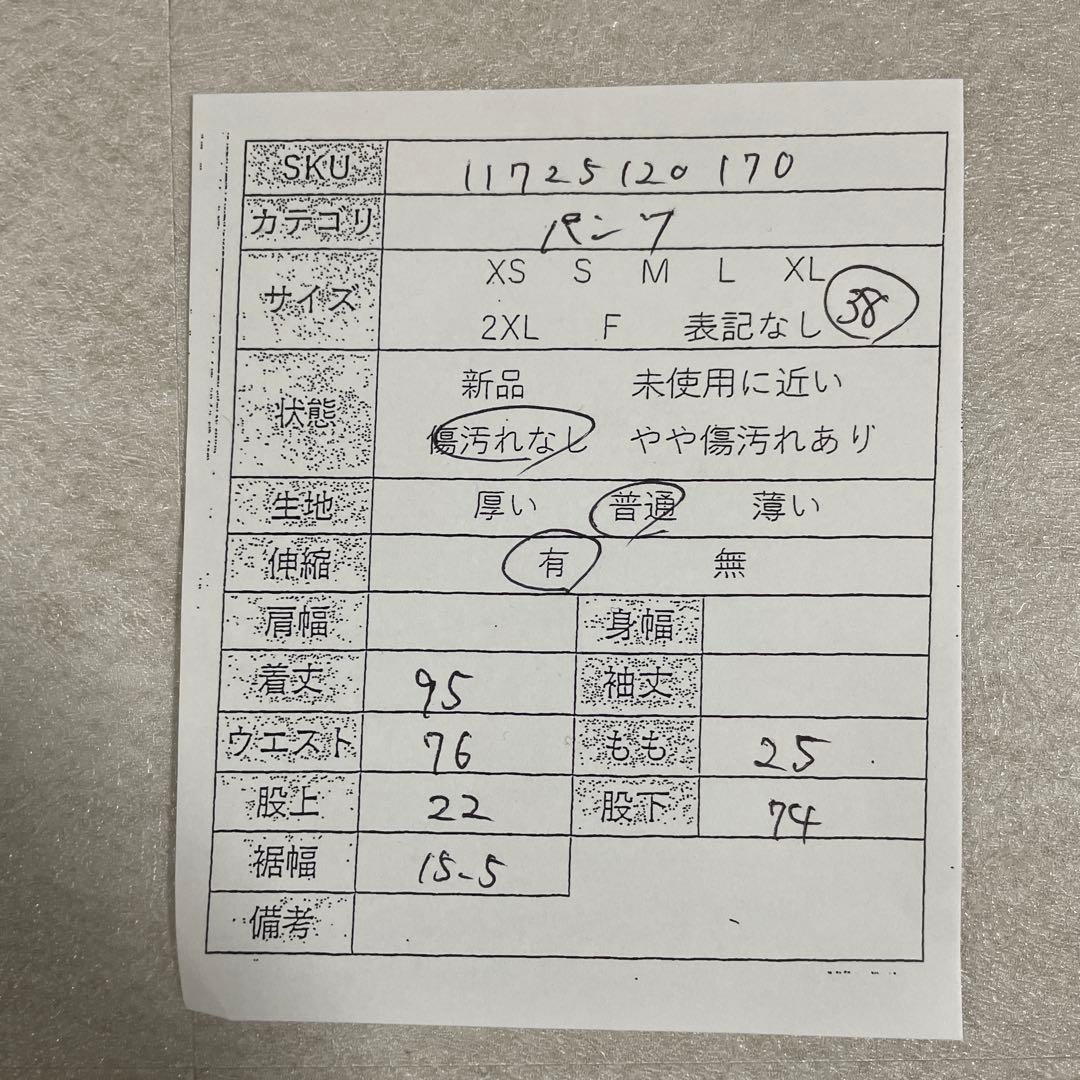 SKU 11725120170
カテゴリ パンツ
サイズ XS S M L XL
2XL F 表記なし 38
状態 新品 未使用に近い
傷汚れなし やや傷汚れあり
生地 厚い 普通 薄い
伸縮 有 無
肩幅 身幅
着丈 95 袖丈
ウエスト 76 もも 25
股上 22 股下 74
裾幅 15.5
備考